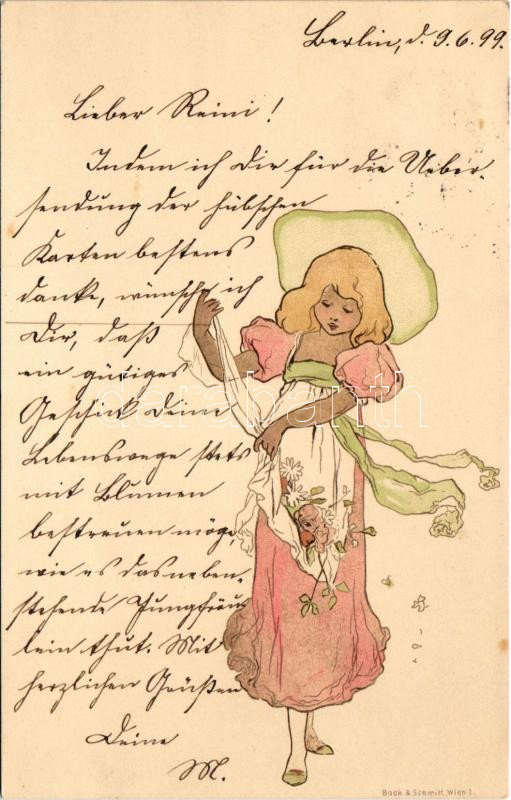 Berlin, d. 9.6.99.
Lieber Reini!
Indem ich Dir für die Ueber-
sendung der hübschen
Karten bestens
danke, wünsche ich
Dir, daß
ein gütiges
Geschick Deine
Lebenswege stets
mit Blumen
bestreuen möge,
wie es das neben-
stehende Jungfräu-
lein thut. Mit
herzlichen Grüßen
Deine
M.
darabanth
Back & Schmitt, Wien I.